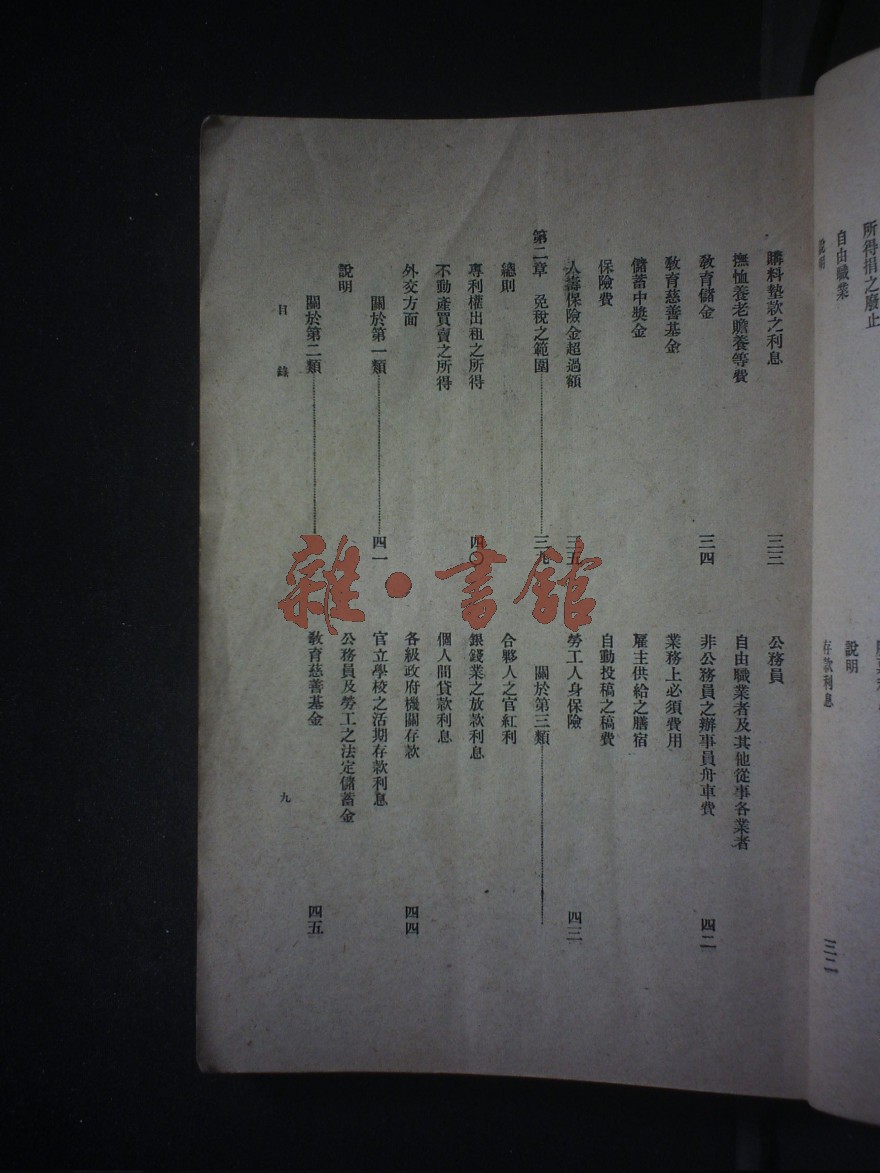 所得捐之廢止
自由職業
說明
說明
存款利息
三二
購料墊款之利息
三三
撫恤養老贍養等費
敎育儲金
三四
敎育慈善基金
儲蓄中獎金
保險費
人壽保險金超過額
三五
第二章 免稅之範圍
三九
總則
專利權出租之所得
四〇
不動產買賣之所得
外交方面
關於第一類
四一
說明
關於第二類
公務員
自由職業者及其他從事各業者
非公務員之辦事員舟車費
四二
業務上必須費用
雇主供給之膳宿
自動投稿之稿費
勞工人身保險
四三
關於第三類
合夥人之官紅利
銀錢業之放款利息
個人間貸款利息
各級政府機關存款
四四
官立學校之活期存款利息
公務員及勞工之法定儲蓄金
敎育慈善基金
四五
目錄
九
雜·書館